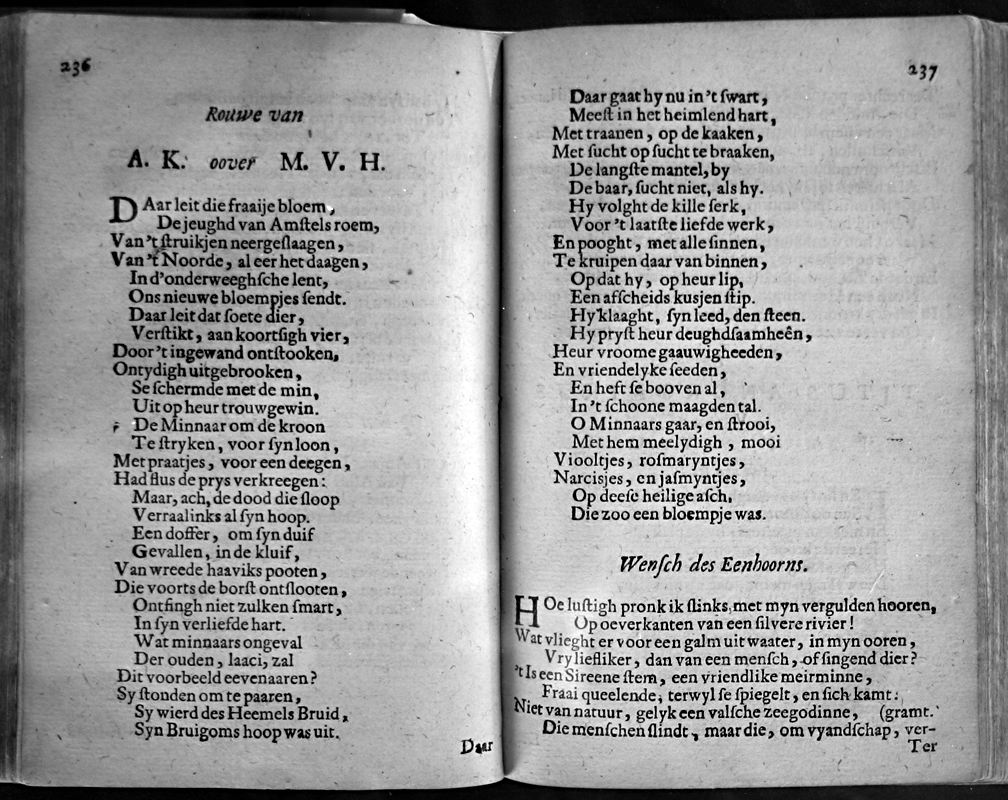 236
Rouwe van
A. K. oover M. V. H.
DAar leit die fraaije bloem,
De jeughd van Amſtels roem,
Van 't ſtruikjen neergeſlaagen,
Van 't Noorde, al eer het daagen,
In d'onderweeghſche lent,
Ons nieuwe bloempjes ſendt.
Daar leit dat ſoete dier,
Verſtikt, aan koortſigh vier,
Door 't ingewand ontſtooken,
Ontydigh uitgebrooken,
Se ſchermde met de min,
Uit op heur trouwgewin.
De Minnaar om de kroon
Te ſtryken, voor ſyn loon,
Met praatjes, voor een deegen,
Had flus de prys verkreegen:
Maar, ach, de dood die ſloop
Verraalinks al ſyn hoop.
Een doffer, om ſyn duif
Gevallen, in de kluif,
Van wreede haaviks pooten,
Die voorts de borſt ontſlooten,
Ontfingh niet zulken ſmart,
In ſyn verliefde hart.
Wat minnaars ongeval
Der ouden, laaci, zal
Dit voorbeeld eevenaaren?
Sy ſtonden om te paaren,
Sy wierd des Heemels Bruid,
Syn Bruigoms hoop was uit.
Daar
237
Daar gaat hy nu in 't ſwart,
Meeſt in het heimlend hart,
Met traanen, op de kaaken,
Met ſucht op ſucht te braaken,
De langſte mantel, by
De baar, ſucht niet, als hy.
Hy volght de kille ſerk,
Voor 't laatſte liefde werk,
En pooght, met alle ſinnen,
Te kruipen daar van binnen,
Op dat hy, op heur lip,
Een afſcheids kusjen ſtip.
Hy klaaght, ſyn leed, den ſteen.
Hy pryſt heur deughdſaamheên,
Heur vroome gaauwigheeden,
En vriendelyke ſeeden,
En heft ſe booven al,
In 't ſchoone maagden tal.
O Minnaars gaar, en ſtrooi,
Met hem meelydigh, mooi
Viooltjes, roſmaryntjes,
Narcisjes, en jaſmyntjes,
Op deeſe heilige aſch,
Die zoo een bloempje was.
Wenſch des Eenhoorns.
HOe luſtigh pronk ik ſlinks, met myn vergulden hooren,
Op oeverkanten van een ſilvere rivier!
Wat vlieght er voor een galm uit waater, in myn ooren,
Vry liefliker, dan van een menſch, of ſingend dier?
't Is een Sireene ſtem, een vriendlike meirminne,
Fraai queelende, terwyl ſe ſpiegelt, en ſich kamt:
Niet van natuur, gelyk een valſche zeegodinne, (gramt.
Die menſchen ſlindt, maar die, om vyandſchap, ver-
Ter